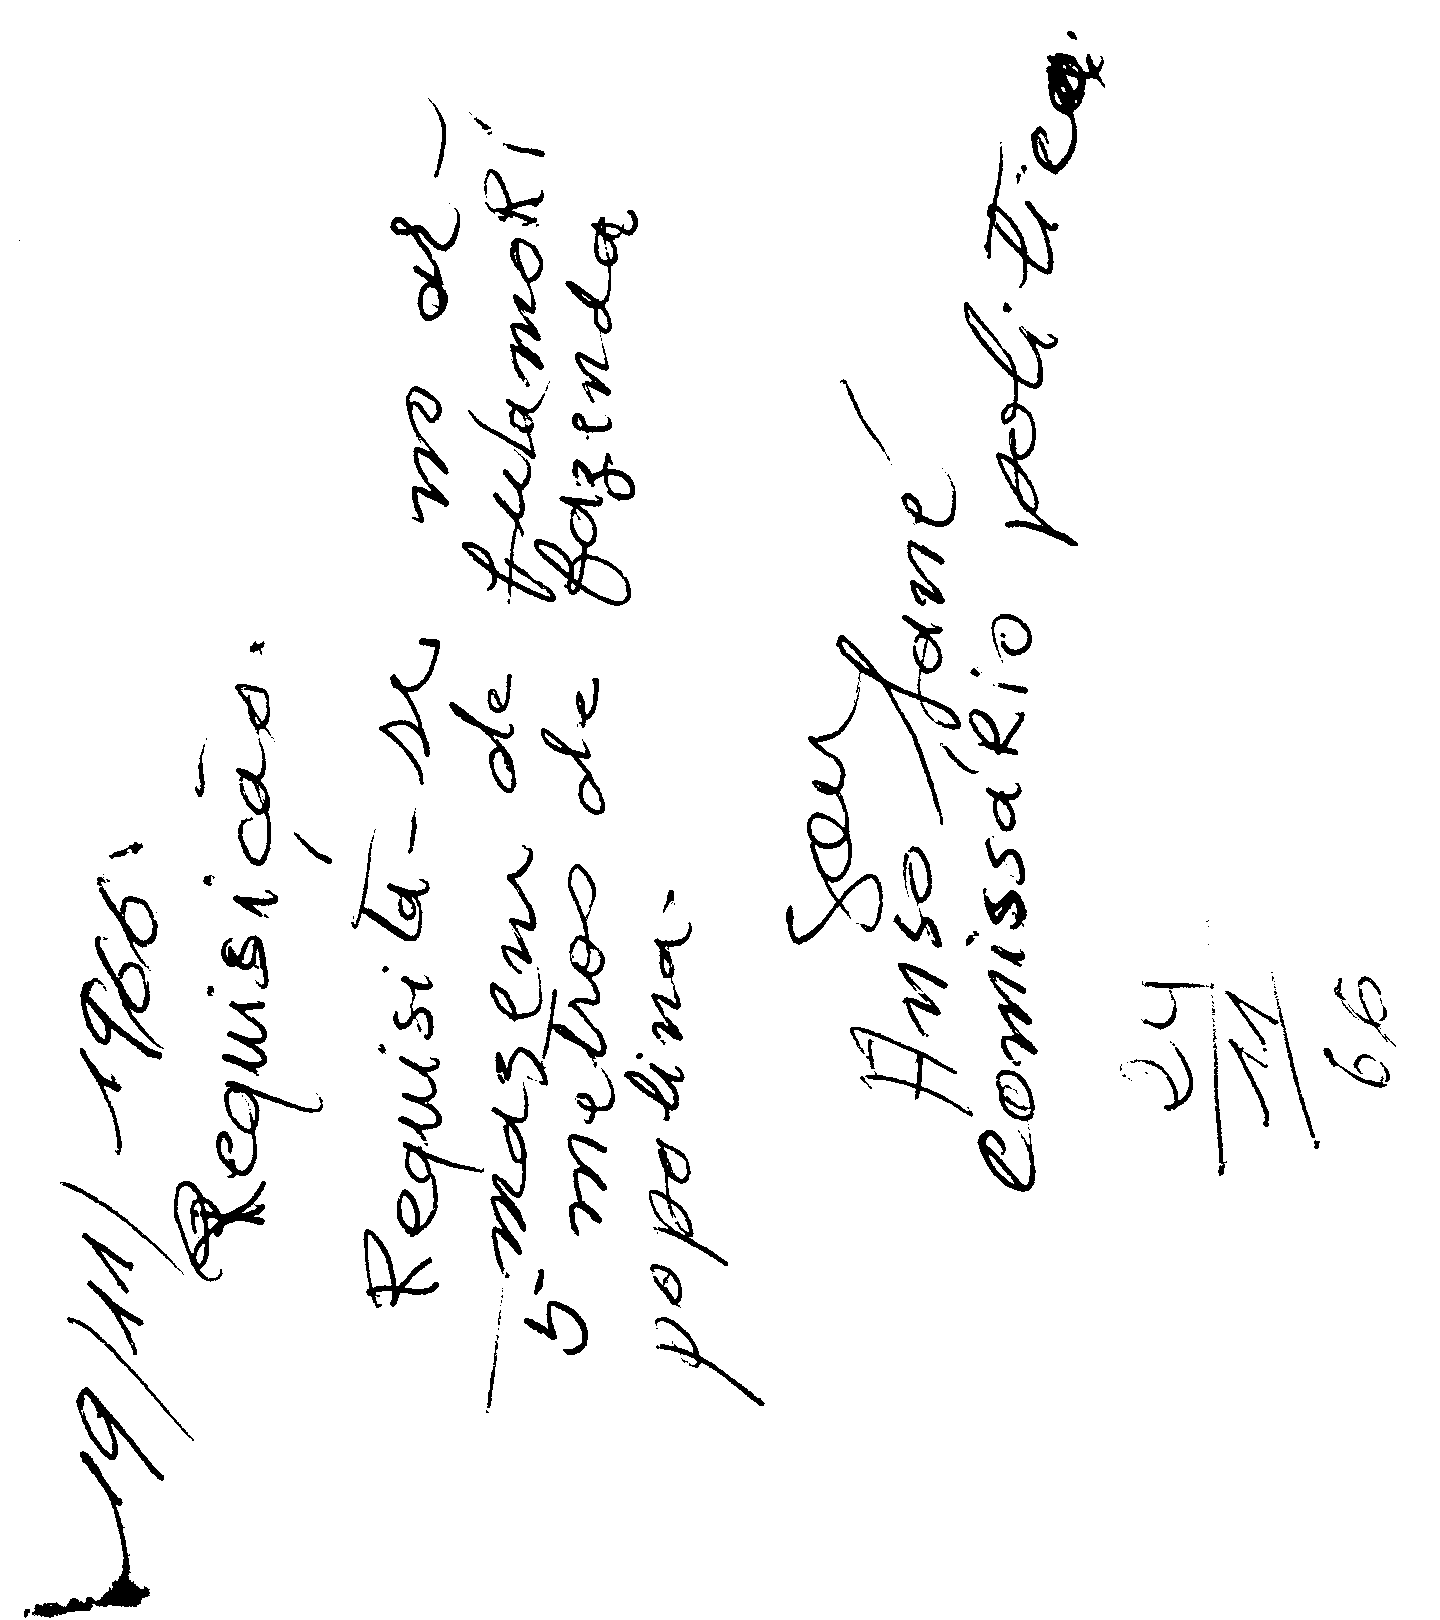 19/11/1966.
Requisição.
Requisita-se no ar-
masem de tulamori
5- metros de fazenda
popolina.
Sou
Anso Jané
Comissário politico.
24
11
66